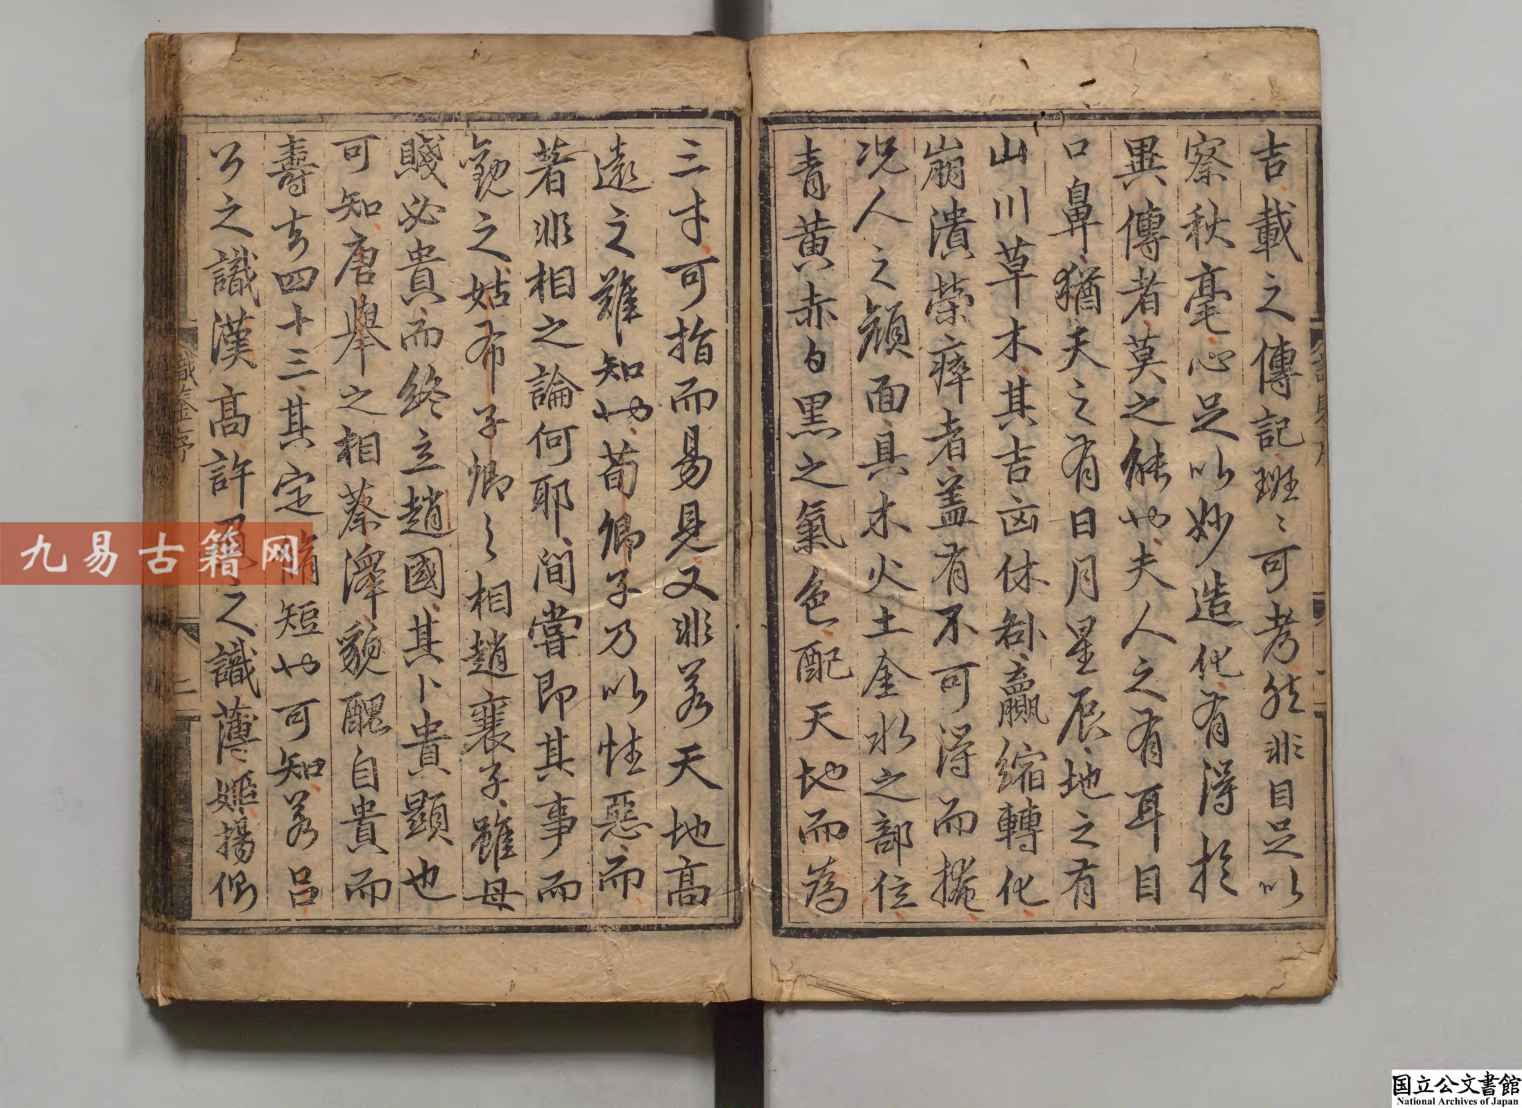 吉載之傳記班〻可考然非目足以
察秋毫心足以妙造化有得於
異傳者莫之能也夫人之有耳目
口鼻猶天之有日月星辰地之有
山川草木其吉凶休咎贏縮轉化
崩潰榮瘁者盖有不可得而掩
况人之顏面具木火土金水之部位
青黃赤白黑之氣色配天地而為
三才可指而易見又非若天地高
遠之難知也荀卿子乃以性惡而
著非相之論何耶間嘗即其事而
觀之姑布子卿之相趙襄子雖母
賤必貴而終立趙國其卜貴顯也
可知唐舉之相蔡澤貌醜自貴而
壽去四十三其定脩短也可知若呂
公之識漢高許負之識薄姬揚傳
鑑序
二
九易古籍网
国立公文書館
National Archives of Japan